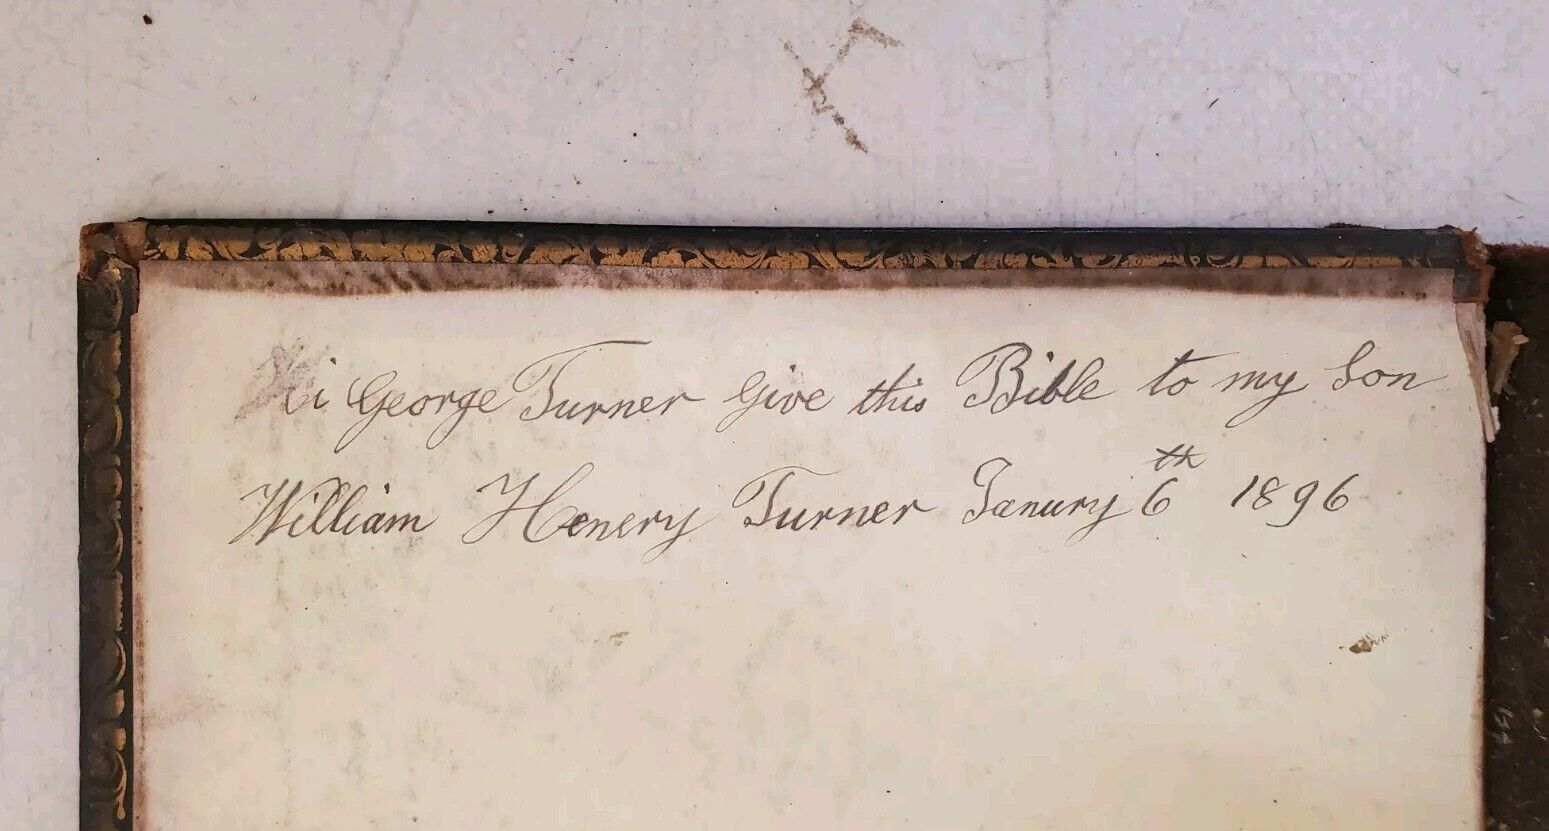 i George Turner Give this Bible to my Son
William Henery Turner Janury 6th 1896